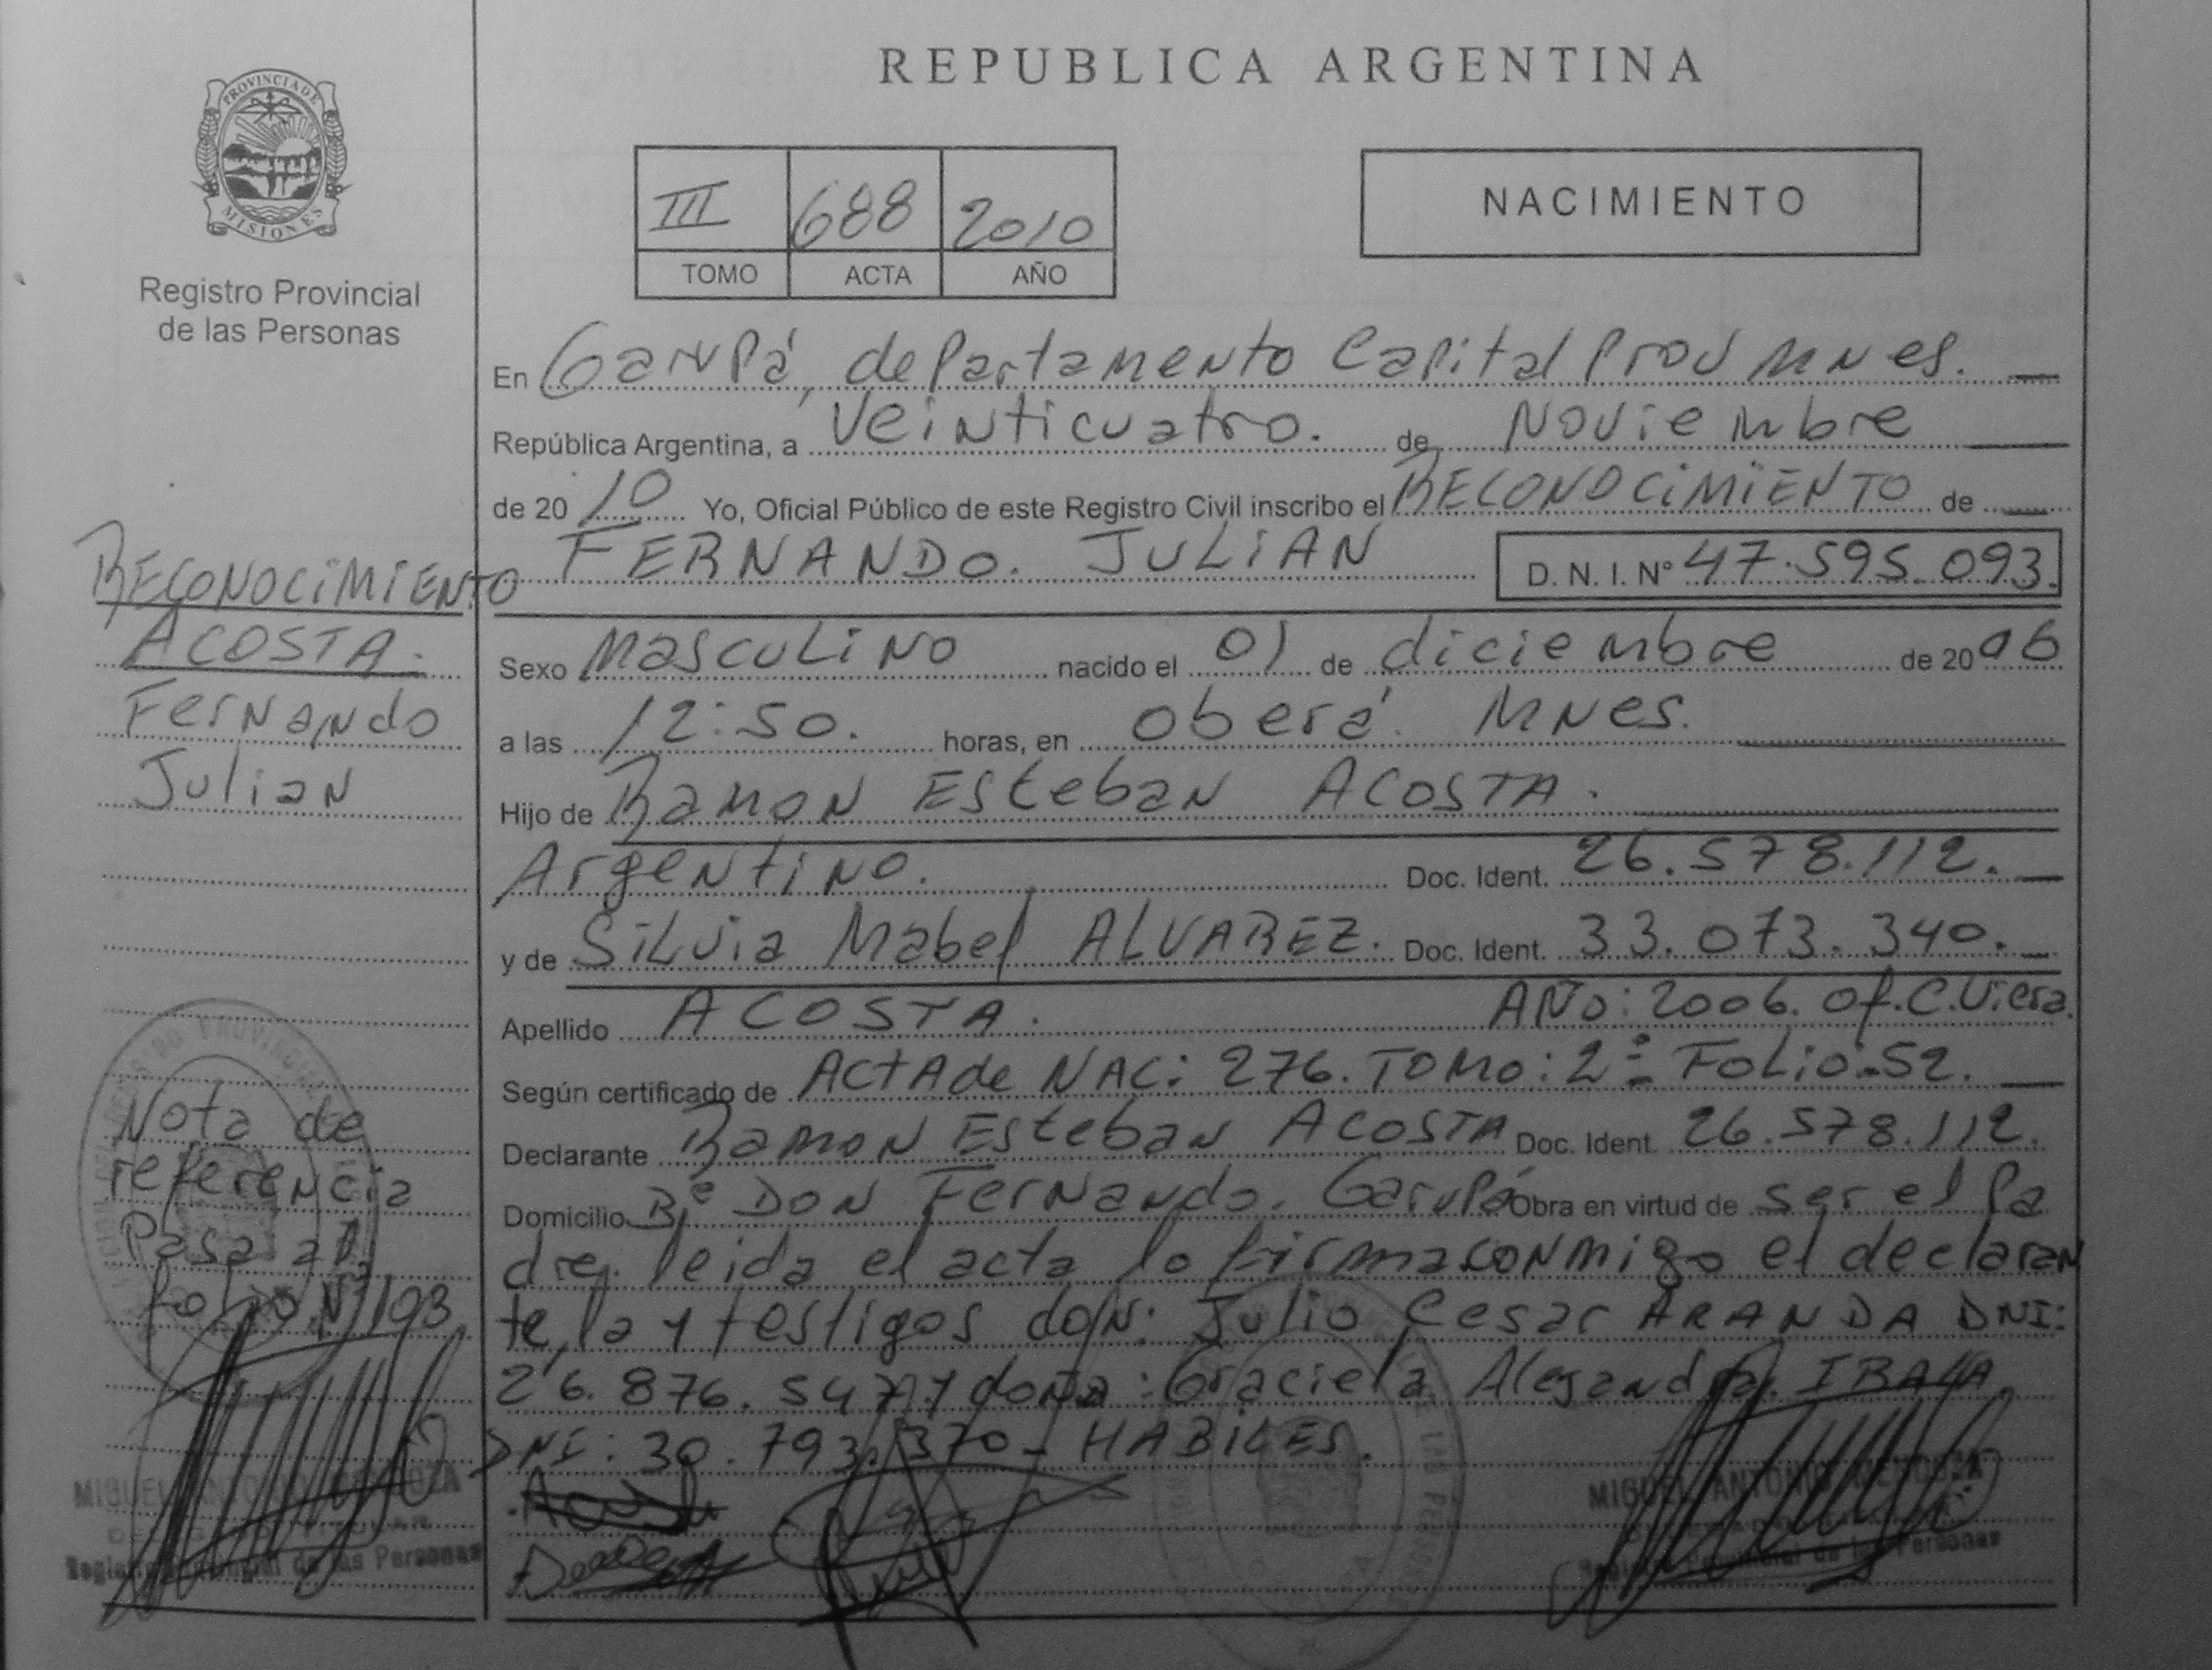 REPUBLICA ARGENTINA
PROVINCIA DE
MISIONES
Registro Provincial
de las Personas
III 688 2010
TOMO ACTA AÑO
NACIMIENTO
En Garupá, departamento Capital Prov Mnes.
República Argentina, a Veinticuatro. de Noviembre
de 20 10 Yo, Oficial Público de este Registro Civil inscribo el RECONOCIMIENTO de
FERNANDO. JULIAN D. N. I. N° 47.595.093.
RECONOCIMIENTO
ACOSTA.
Fernando
Julian
Sexo Masculino nacido el 01 de diciembre de 2006
a las 12:50. horas, en Oberá. Mnes.
Hijo de Ramon Esteban ACOSTA.
Argentino. Doc. Ident. 26.578.112.
y de Silvia Mabel ALVAREZ. Doc. Ident. 33.073.340.
Apellido ACOSTA. AÑO: 2006. Of. C. Viera.
Según certificado de ACTA de NAC: 276. TOMO: 2º Folio: 52.
Declarante Ramon Esteban ACOSTA Doc. Ident. 26.578.112.
Domicilio Bº DON Fernando. Garupá Obra en virtud de ser el Pa
dre. leida el acta lo firma conmigo el declaran
te, la y testigos don: Julio Cesar ARANDA DNI:
26.876.547 y doña: Graciela Alejandra
DNI: 30.793.370- HABILES.
Nota de
referencia
Pasa al
folio Nº 193
MIGUEL ANTONIO MENDOZA
Registro Provincial de las Personas
MIGUEL ANTONIO MENDOZA
Registro Provincial de las Personas